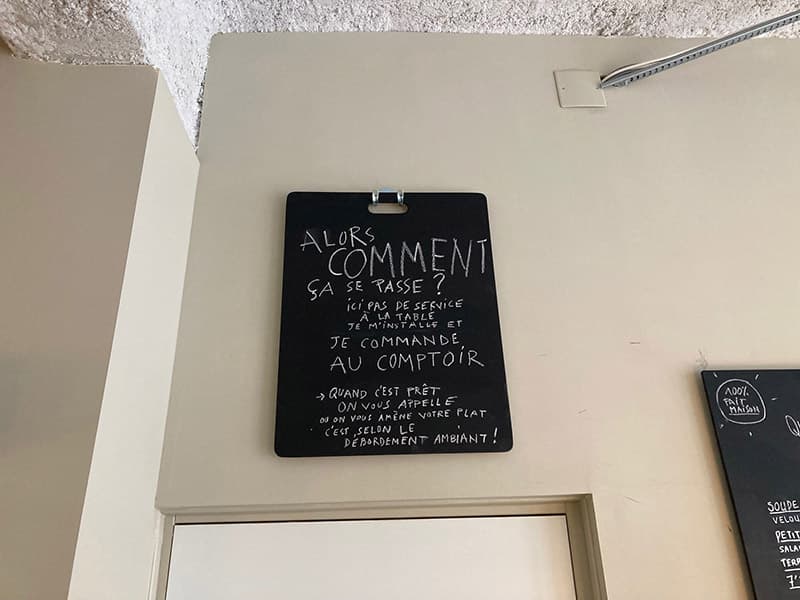 ALORS
COMMENT
ÇA SE PASSE ?
ICI PAS DE SERVICE
À LA TABLE
JE M'INSTALLE ET
JE COMMANDE
AU COMPTOIR
→ QUAND C'EST PRÊT
ON VOUS APPELLE
OU ON VOUS AMÈNE VOTRE PLAT
C'EST SELON LE
DÉBORDEMENT AMBIANT !
100%
FAIT
MAISON
SOUDE
VELOU
PETIT
SALA
TERR
7'